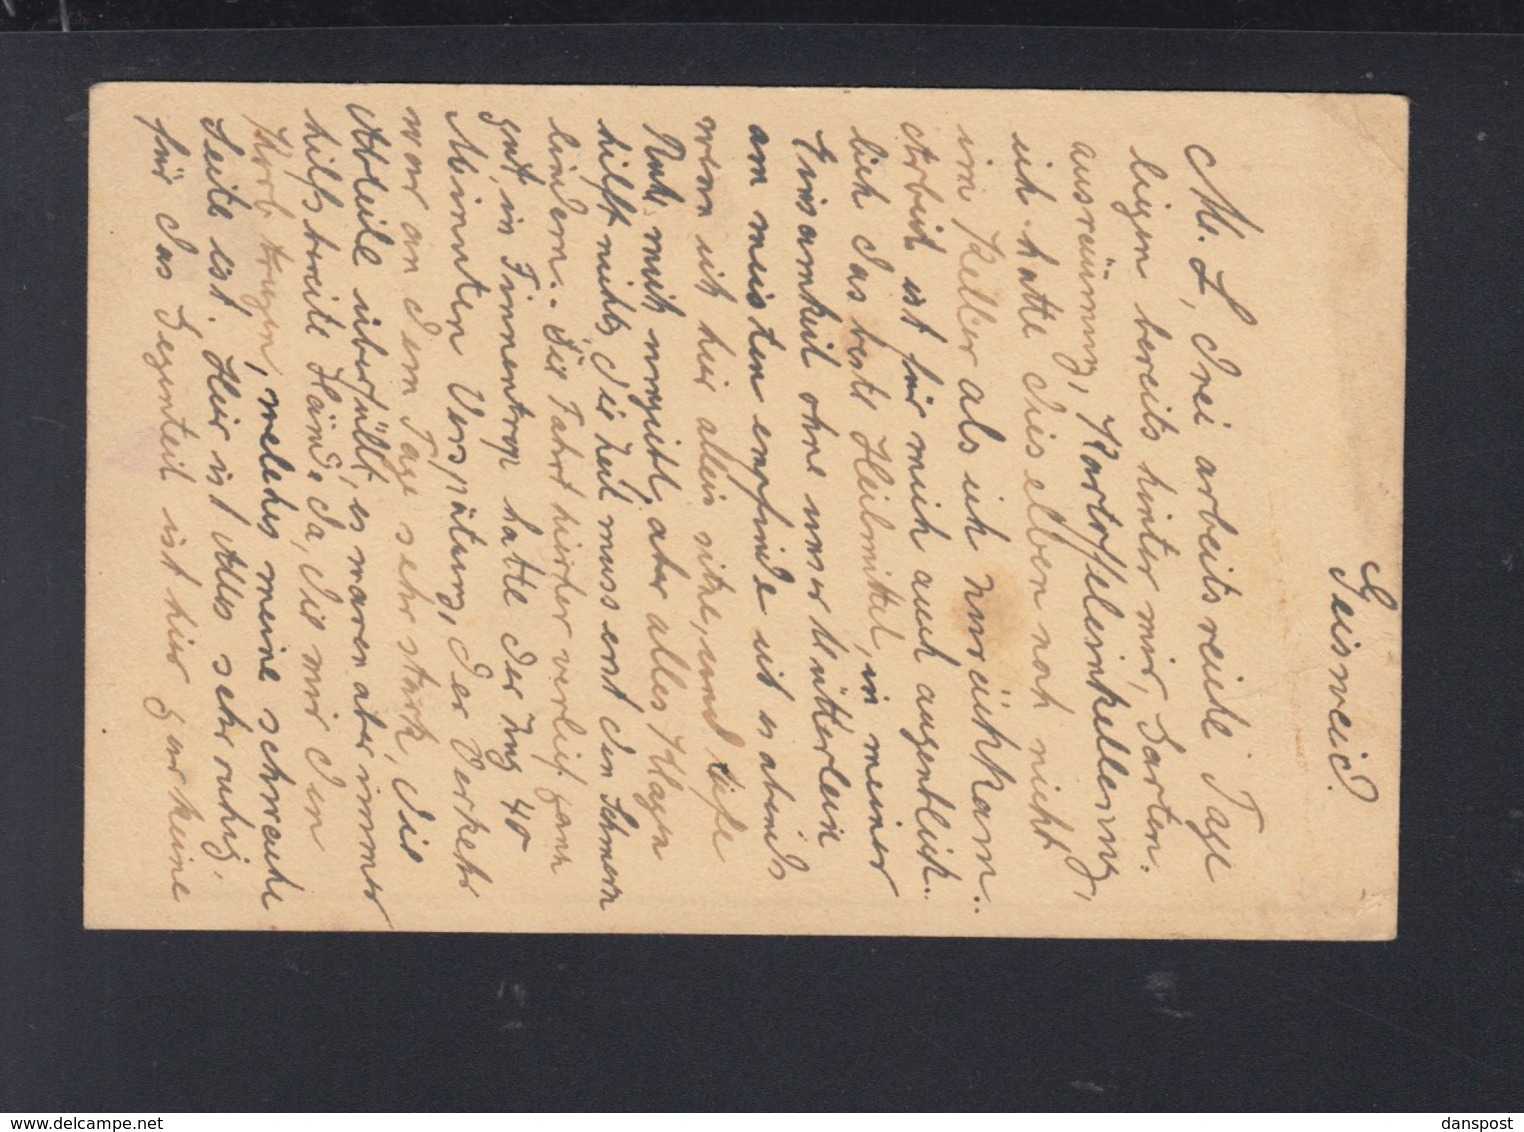 Geisweid.
M. L, drei arbeitsreiche Tage
liegen bereits hinter mir, Garten-
ausräumung, Kartoffeleinkellerung,
ich hatte dieselben noch nicht
im Keller als ich zurückkam..
Arbeit ist für mich auch augenblick..
lich das beste Heilmittel, in meiner
Einsamkeit ohne unser Mütterlein
am meisten empfinde ich es abends
wenn ich hier allein sitze, und tiefe
Ruh mich umgibt, aber alles Klagen
hilft nichts, die Zeit muss erst den Schmerz
lindern.. Die Fahrt hierher verlief ganz
gut, in Finnentrop hatte der Zug 40
Minuten Verspätung, der Verkehr
war an dem Tage sehr stark, die
Abteile überfüllt, es waren aber immer
hilfsbereite Hände da, die mir den
Korb trugen, welches meine schwache
Seite ist. Hier ist Alles sehr ruhig,
für das Gegenteil ist hier gar keine
danspost